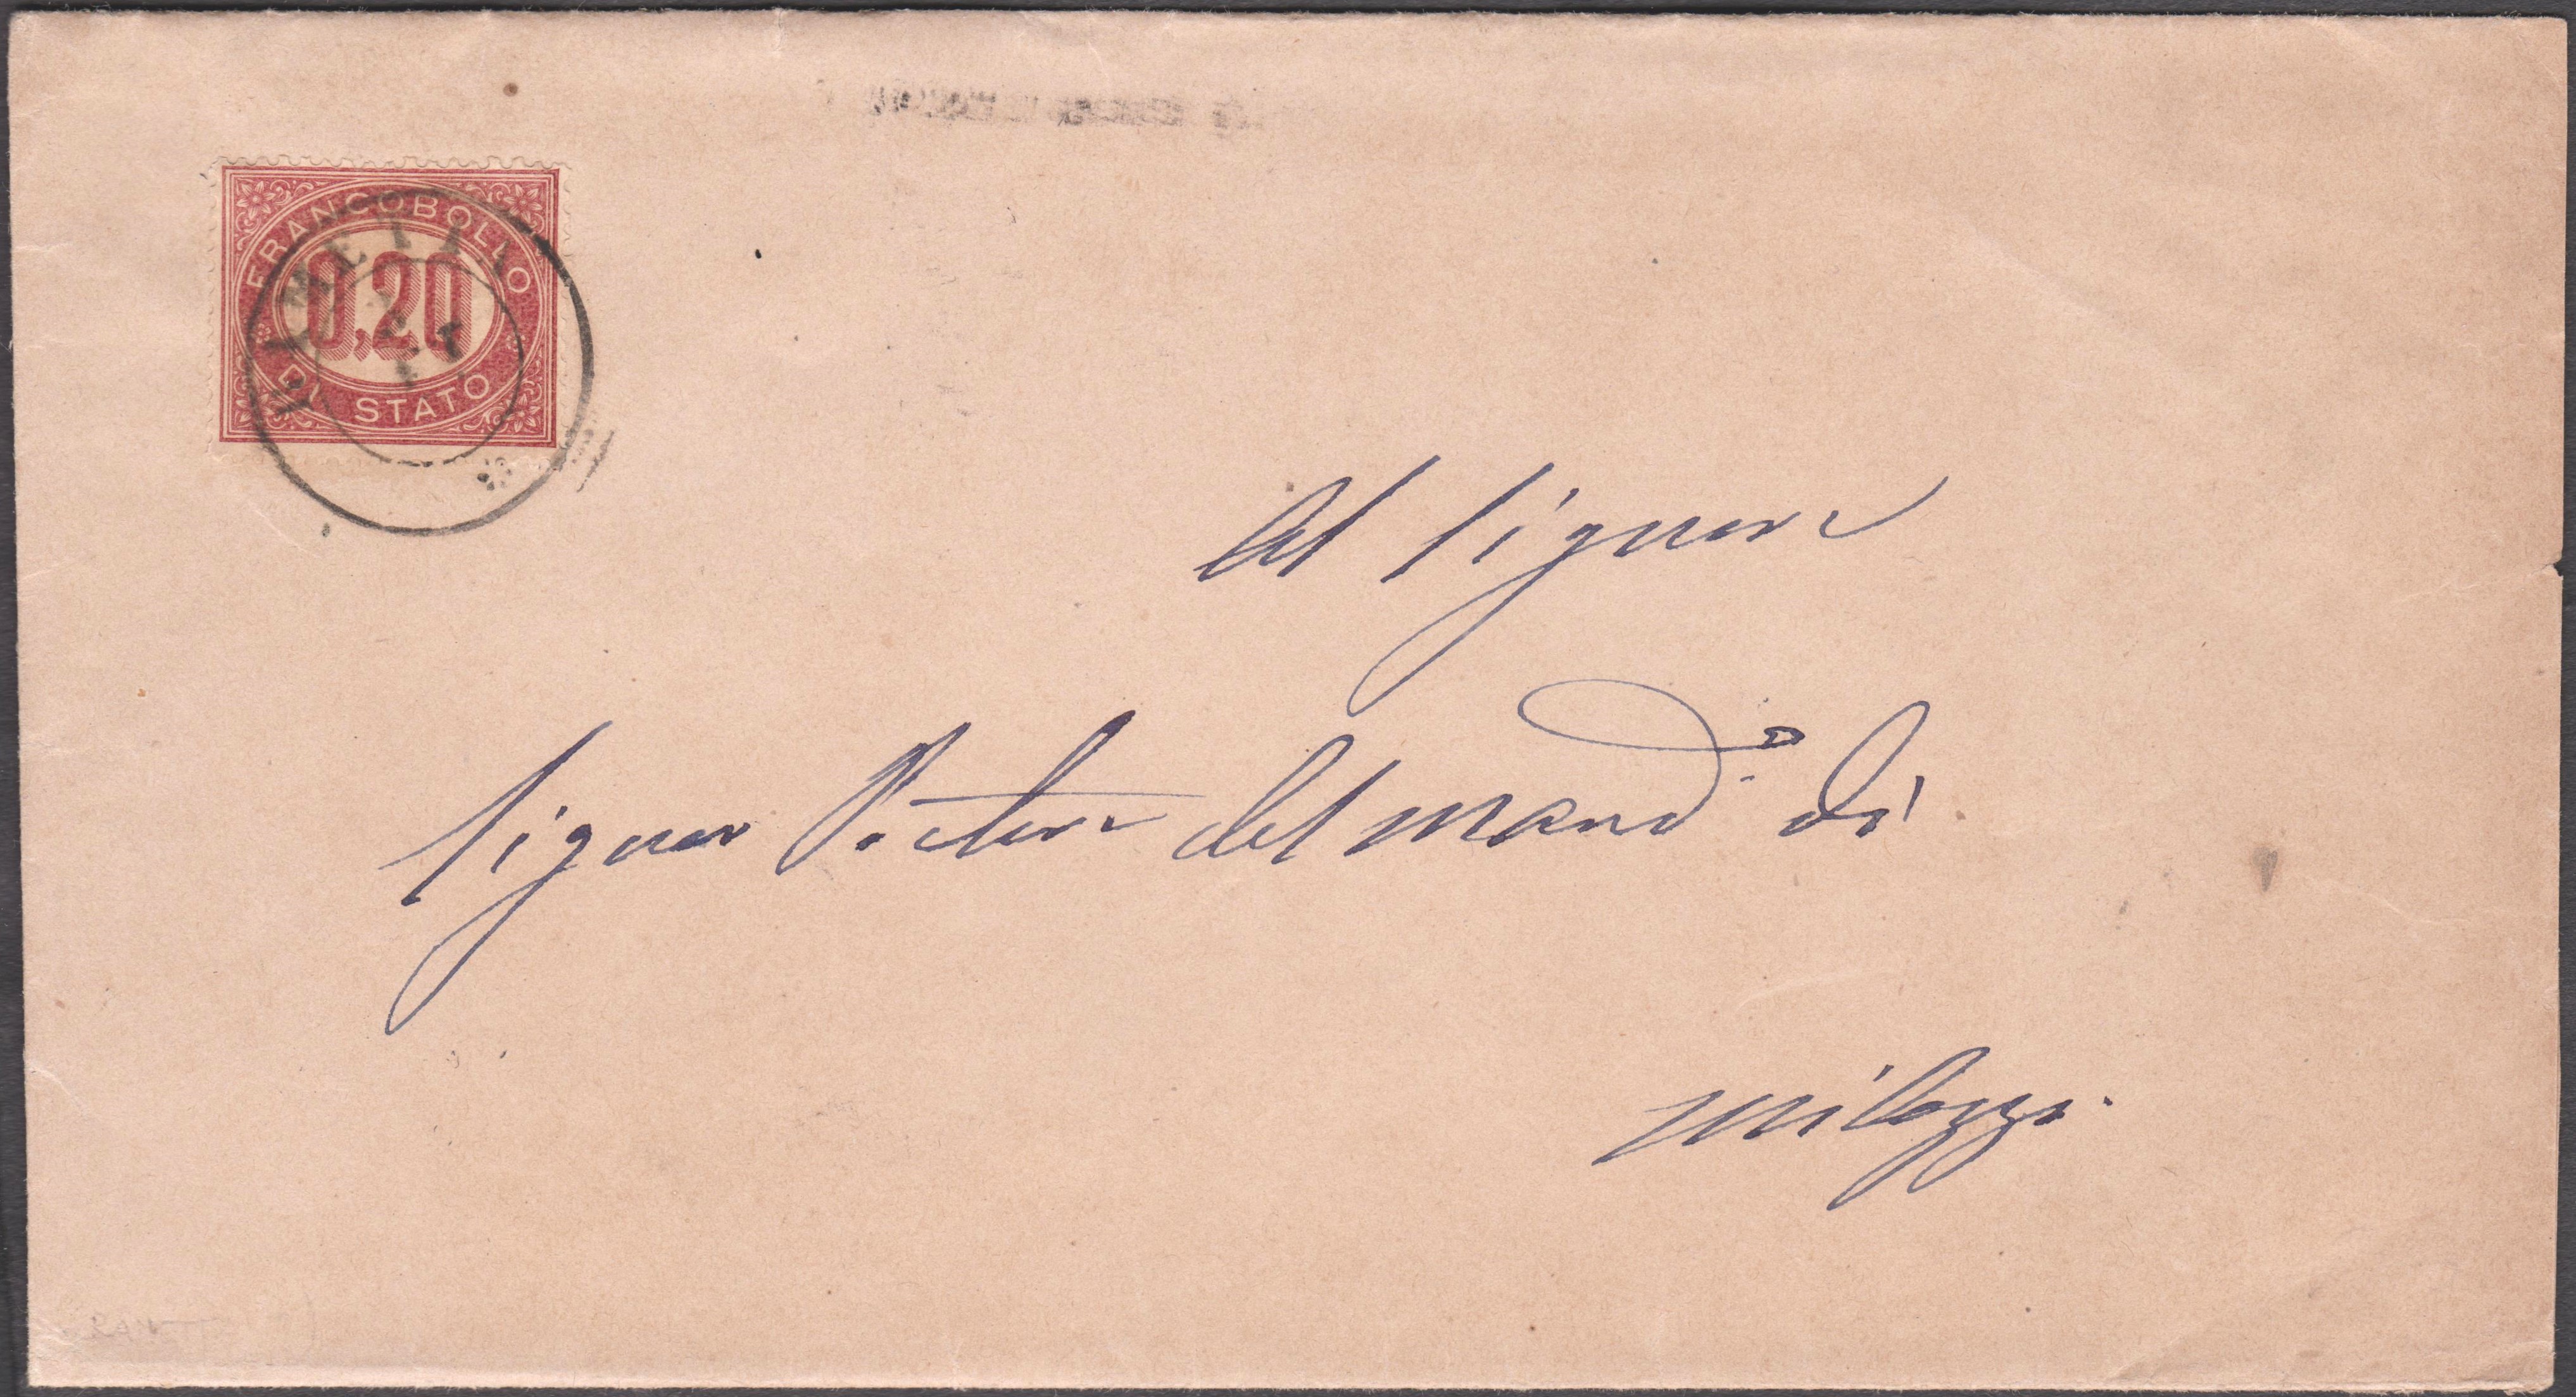 FRANCOBOLLO
0,20
DI STATO
Al Signore
Signor Pretore del Mand.o di
Milazzo.